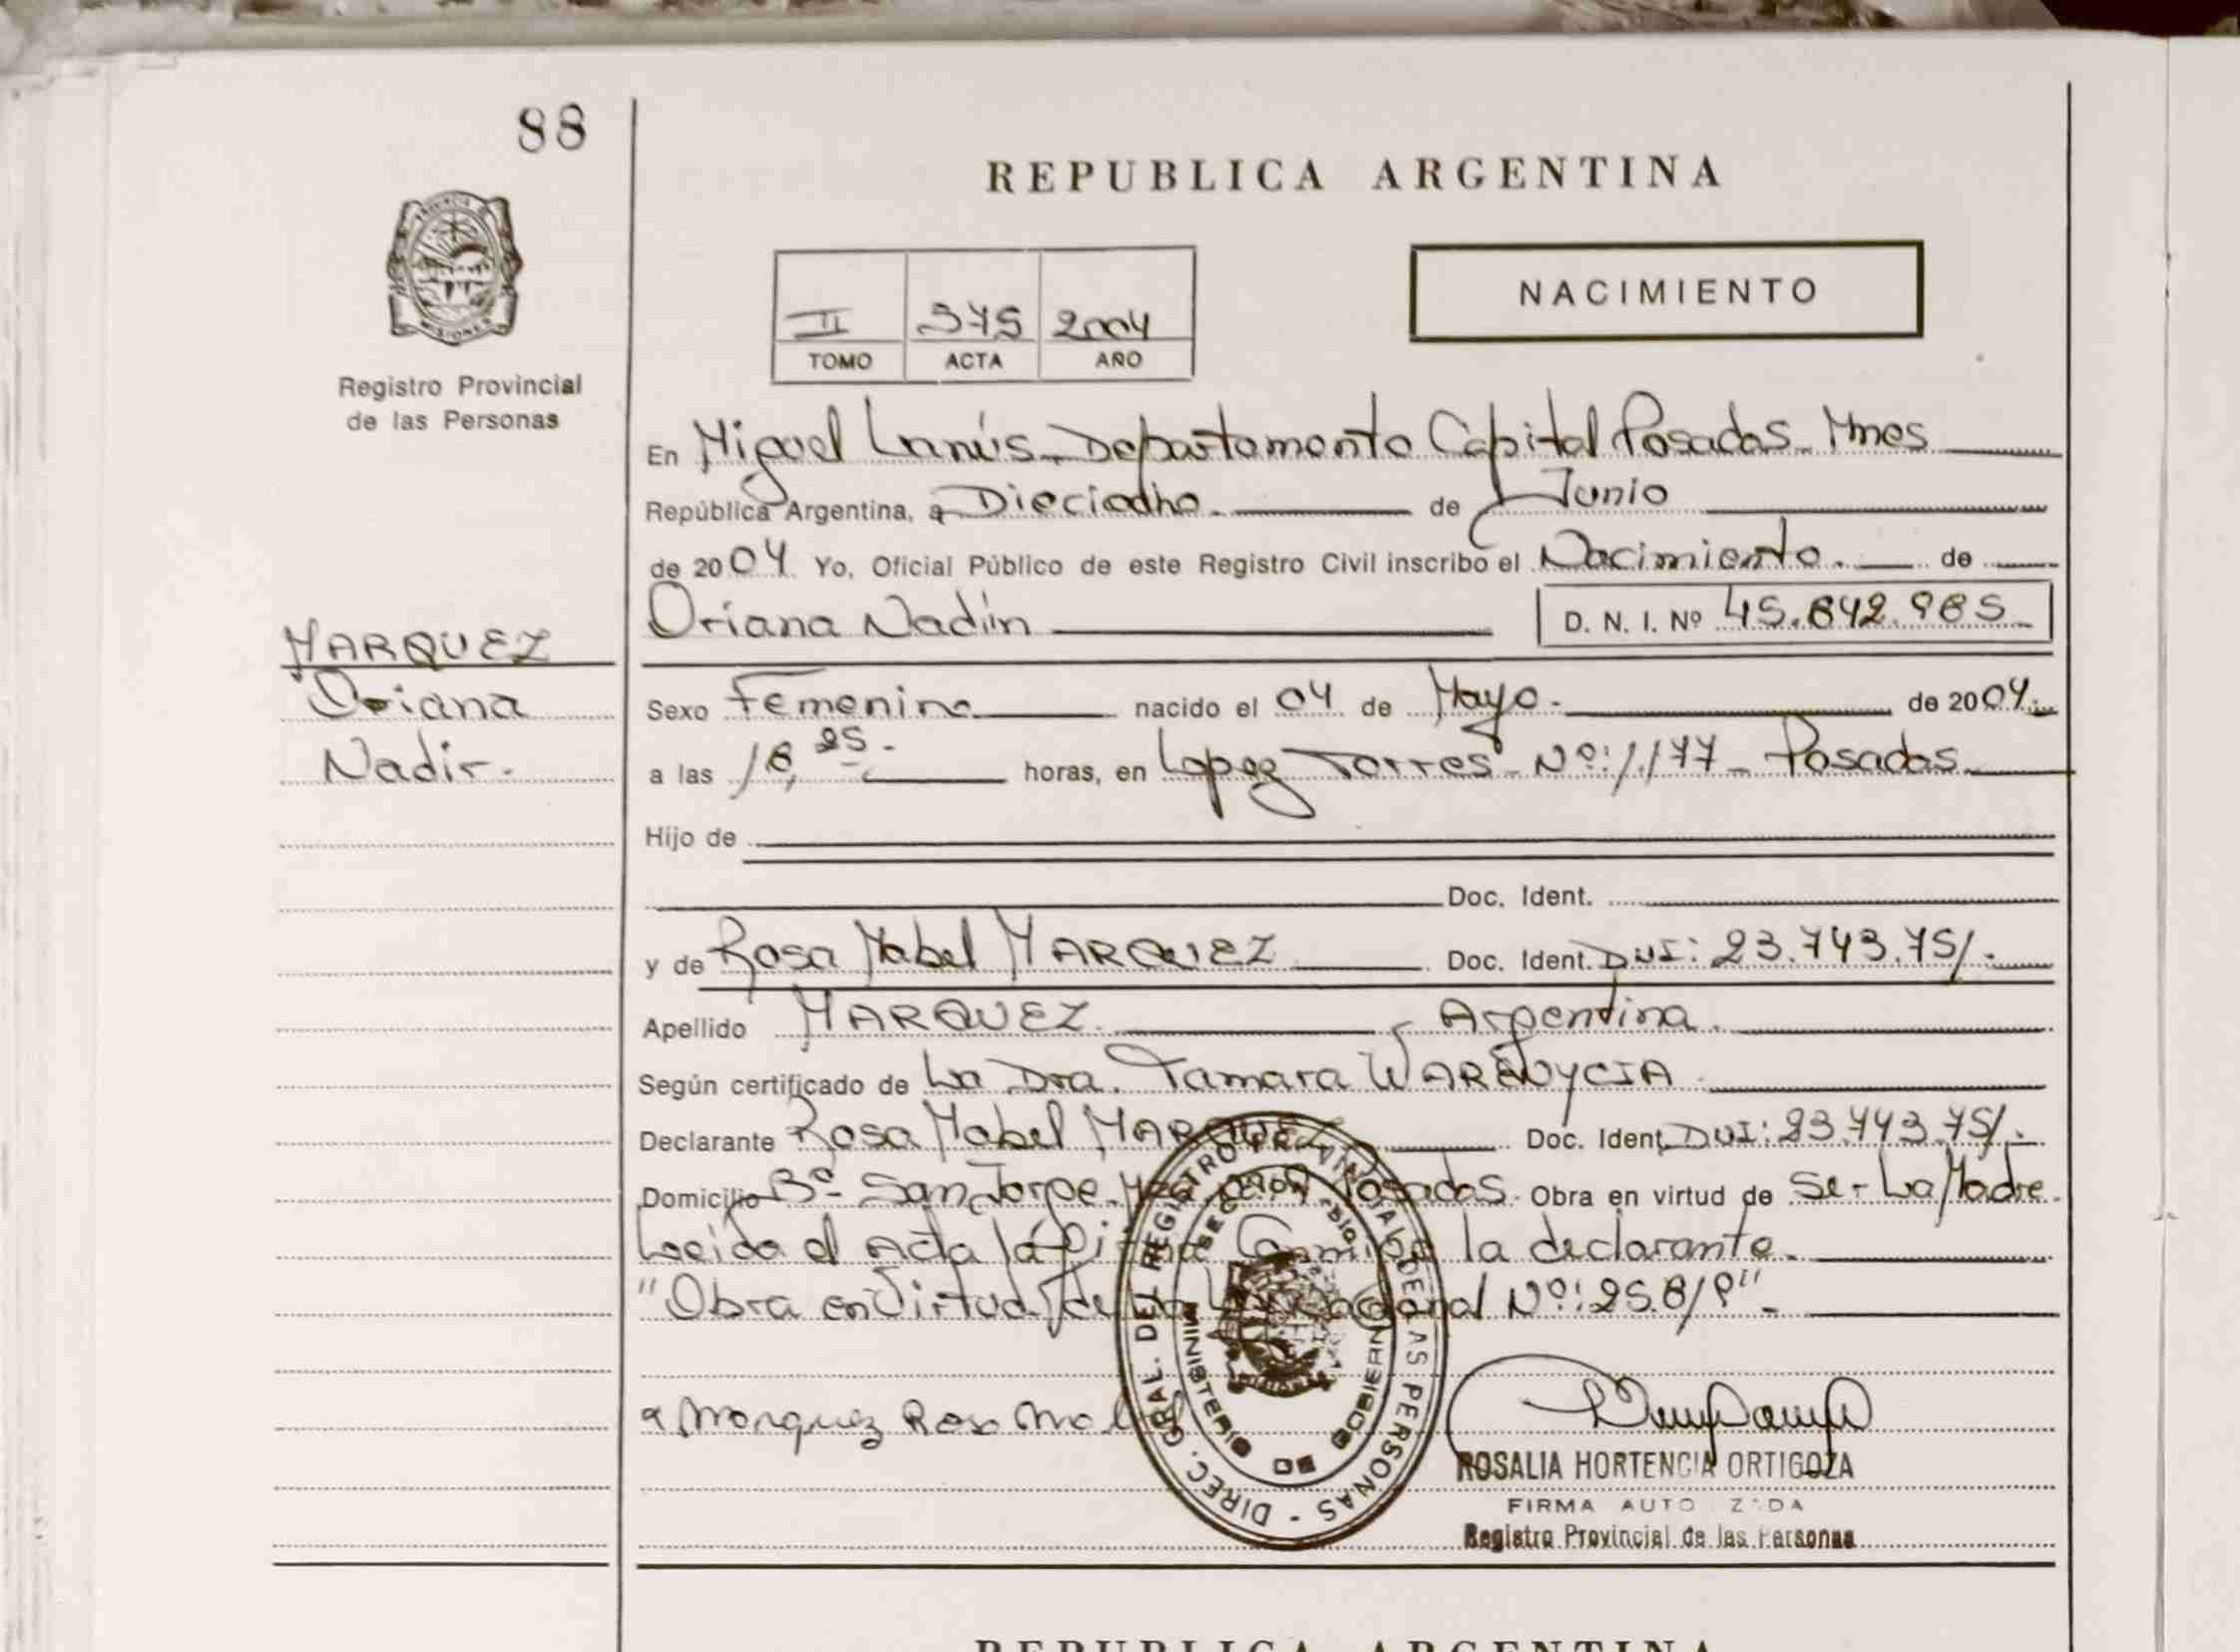 88
REPUBLICA ARGENTINA
NACIMIENTO
II 375 2004
TOMO ACTA AÑO
Registro Provincial
de las Personas
En Miguel Lanús - Departamento Capital Posadas - Mnes
República Argentina, a Dieciocho. de Junio
de 2004 Yo, Oficial Público de este Registro Civil inscribo el Nacimiento. de
Oriana Nadin D. N. I. Nº 45.842.985
MARQUEZ
Oriana
Nadir.
Sexo Femenino nacido el 04 de Mayo. de 2004.
a las 18,25- horas, en Lopez Torres Nº: 1.177 - Posadas
Hijo de
Doc. Ident.
y de Rosa Mabel MARQUEZ Doc. Ident. DNI: 23.743.751.
Apellido MARQUEZ. Argentina.
Según certificado de La Dra. Tamara WARENYCIA
Declarante Rosa Mabel MARQUEZ Doc. Ident. DNI: 23.743.751.
Domicilio Bº San Jorge Posadas. Obra en virtud de Ser - La Madre.
Leida el Acta la declarante.
"Obra en Virtud de la Ley Nacional Nº: 25.819"
Marquez Rosa
DIREC. GRAL. DEL REGISTRO PROVINCIAL DE LAS PERSONAS -
MINISTERIO DE GOBIERNO
ROSALIA HORTENCIA ORTIGOZA
FIRMA AUTORIZADA
Registro Provincial de las Personas
REPUBLICA ARGENTINA